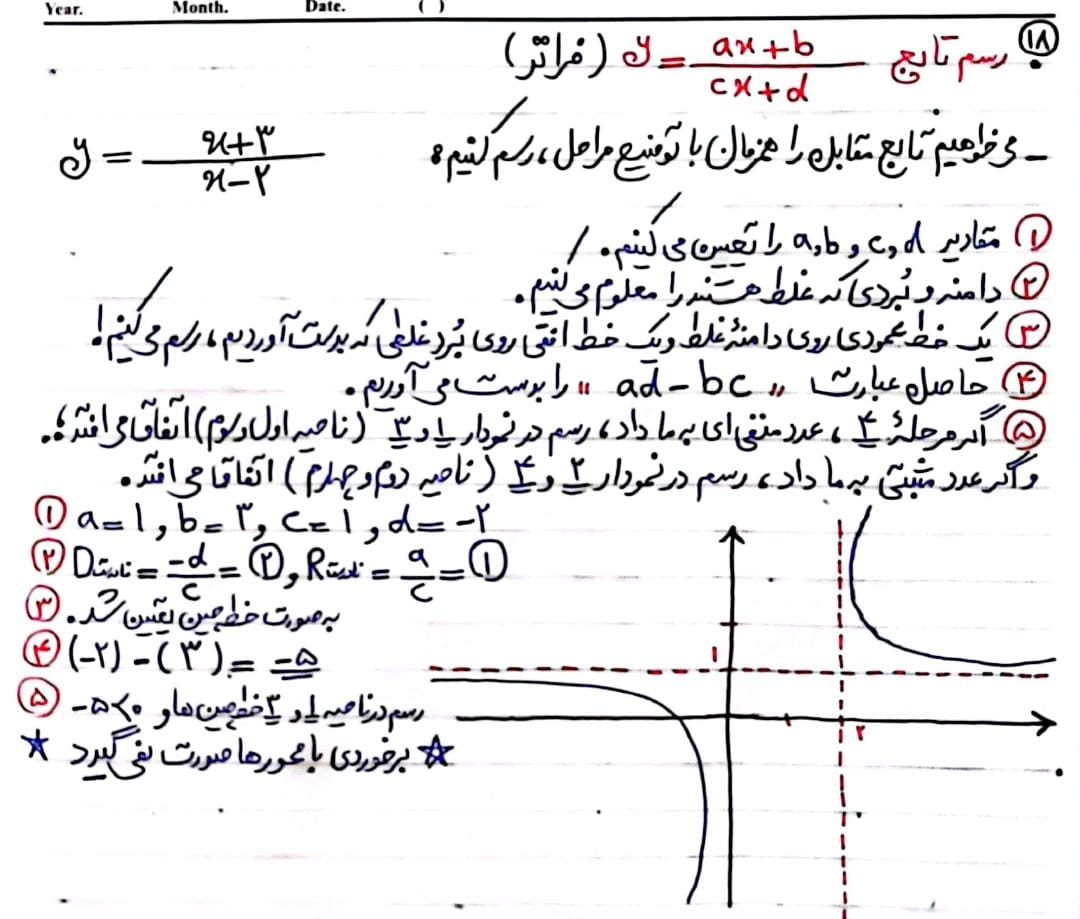 Year. Month. Date. ( )
۱۸ رسم تابع y = (ax+b)/(cx+d) (فراتر)
- می‌خواهیم تابع مقابل را همزمان با توضیح مراحل، رسم کنیم: y = (x+۳)/(x-۲)
۱ مقادیر a,b و c,d را تعیین می‌کنیم.
۲ دامنه و بُردی که غلط هستند را معلوم می‌کنیم.
۳ یک خط عمودی روی دامنهٔ غلط و یک خط افقی روی بُرد غلطی که بدست آوردیم، رسم می‌کنیم!
۴ حاصل عبارت "ad-bc" را بدست می‌آوریم.
۵ اگر مرحلهٔ ۴، عدد منفی‌ای به ما داد، رسم در نمودار ۱ و ۳ (ناحیه اول و سوم) اتفاق می‌افتد؛
و اگر عدد مثبتی به ما داد، رسم در نمودار ۲ و ۴ (ناحیه دوم و چهارم) اتفاقا می افتد.
۱ a=1, b=۳, c=1, d=-۲
۲ D نادرست = -d/c = ۲, R نادرست = a/c = ۱
۳ به صورت خط‌چین تعیین شد.
۴ (-۲)-(۳)= -۵
۵ رسم در ناحیه ۱ و ۳ خط‌چین‌ها و -۵<۰
★ برخوردی با محورها صورت نمی‌گیرد ★
۱
۲